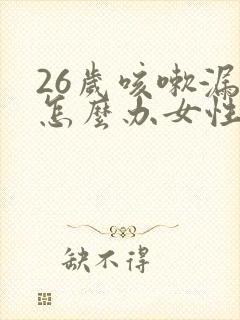 26歲咳嗽漏
怎麼办女性
缺不得